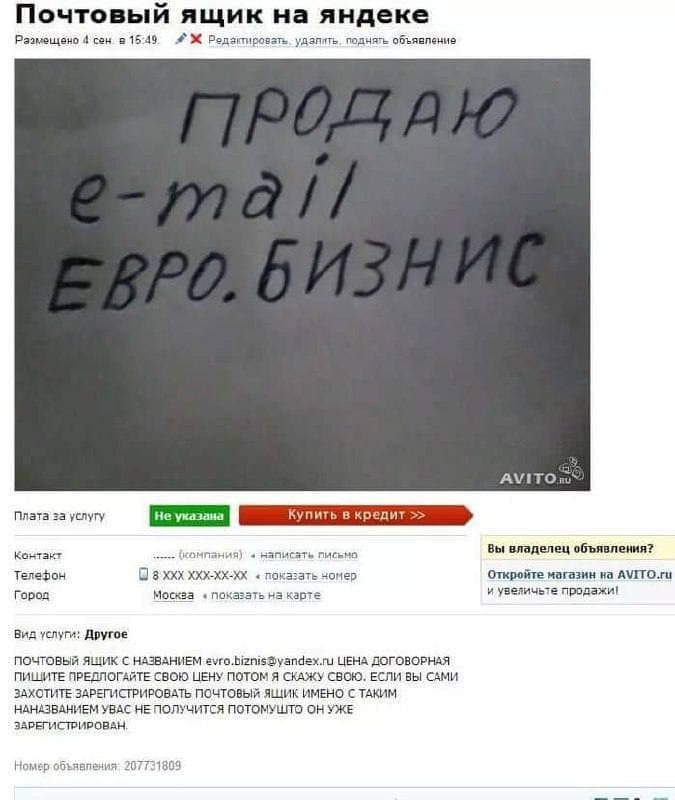 Почтовый ящик на яндеке
Размещено 4 сен. в 15:49. Редактировать, удалить, поднять объявление
ПРОДАЮ
e-mail
ЕВРО.БИЗНИС
AVITO.RU
Плата за услугу Не указана Купить в кредит >>
Контакт ...... (компания) написать письмо
Телефон 8 XXX XXX-XX-XX показать номер
Город Москва показать на карте
Вы владелец объявления?
Откройте магазин на AVITO.ru
и увеличьте продажи!
Вид услуги: Другое
ПОЧТОВЫЙ ЯЩИК С НАЗВАНИЕМ evro.biznis@yandex.ru ЦЕНА ДОГОВОРНАЯ
ПИШИТЕ ПРЕДЛОГАЙТЕ СВОЮ ЦЕНУ ПОТОМ Я СКАЖУ СВОЮ. ЕСЛИ ВЫ САМИ
ЗАХОТИТЕ ЗАРЕГИСТРИРОВАТЬ ПОЧТОВЫЙ ЯЩИК ИМЕНО С ТАКИМ
НАНАЗВАНИЕМ УВАС НЕ ПОЛУЧИТСЯ ПОТОМУШТО ОН УЖЕ
ЗАРЕГИСТРИРОВАН.
Номер объявления: 207731809